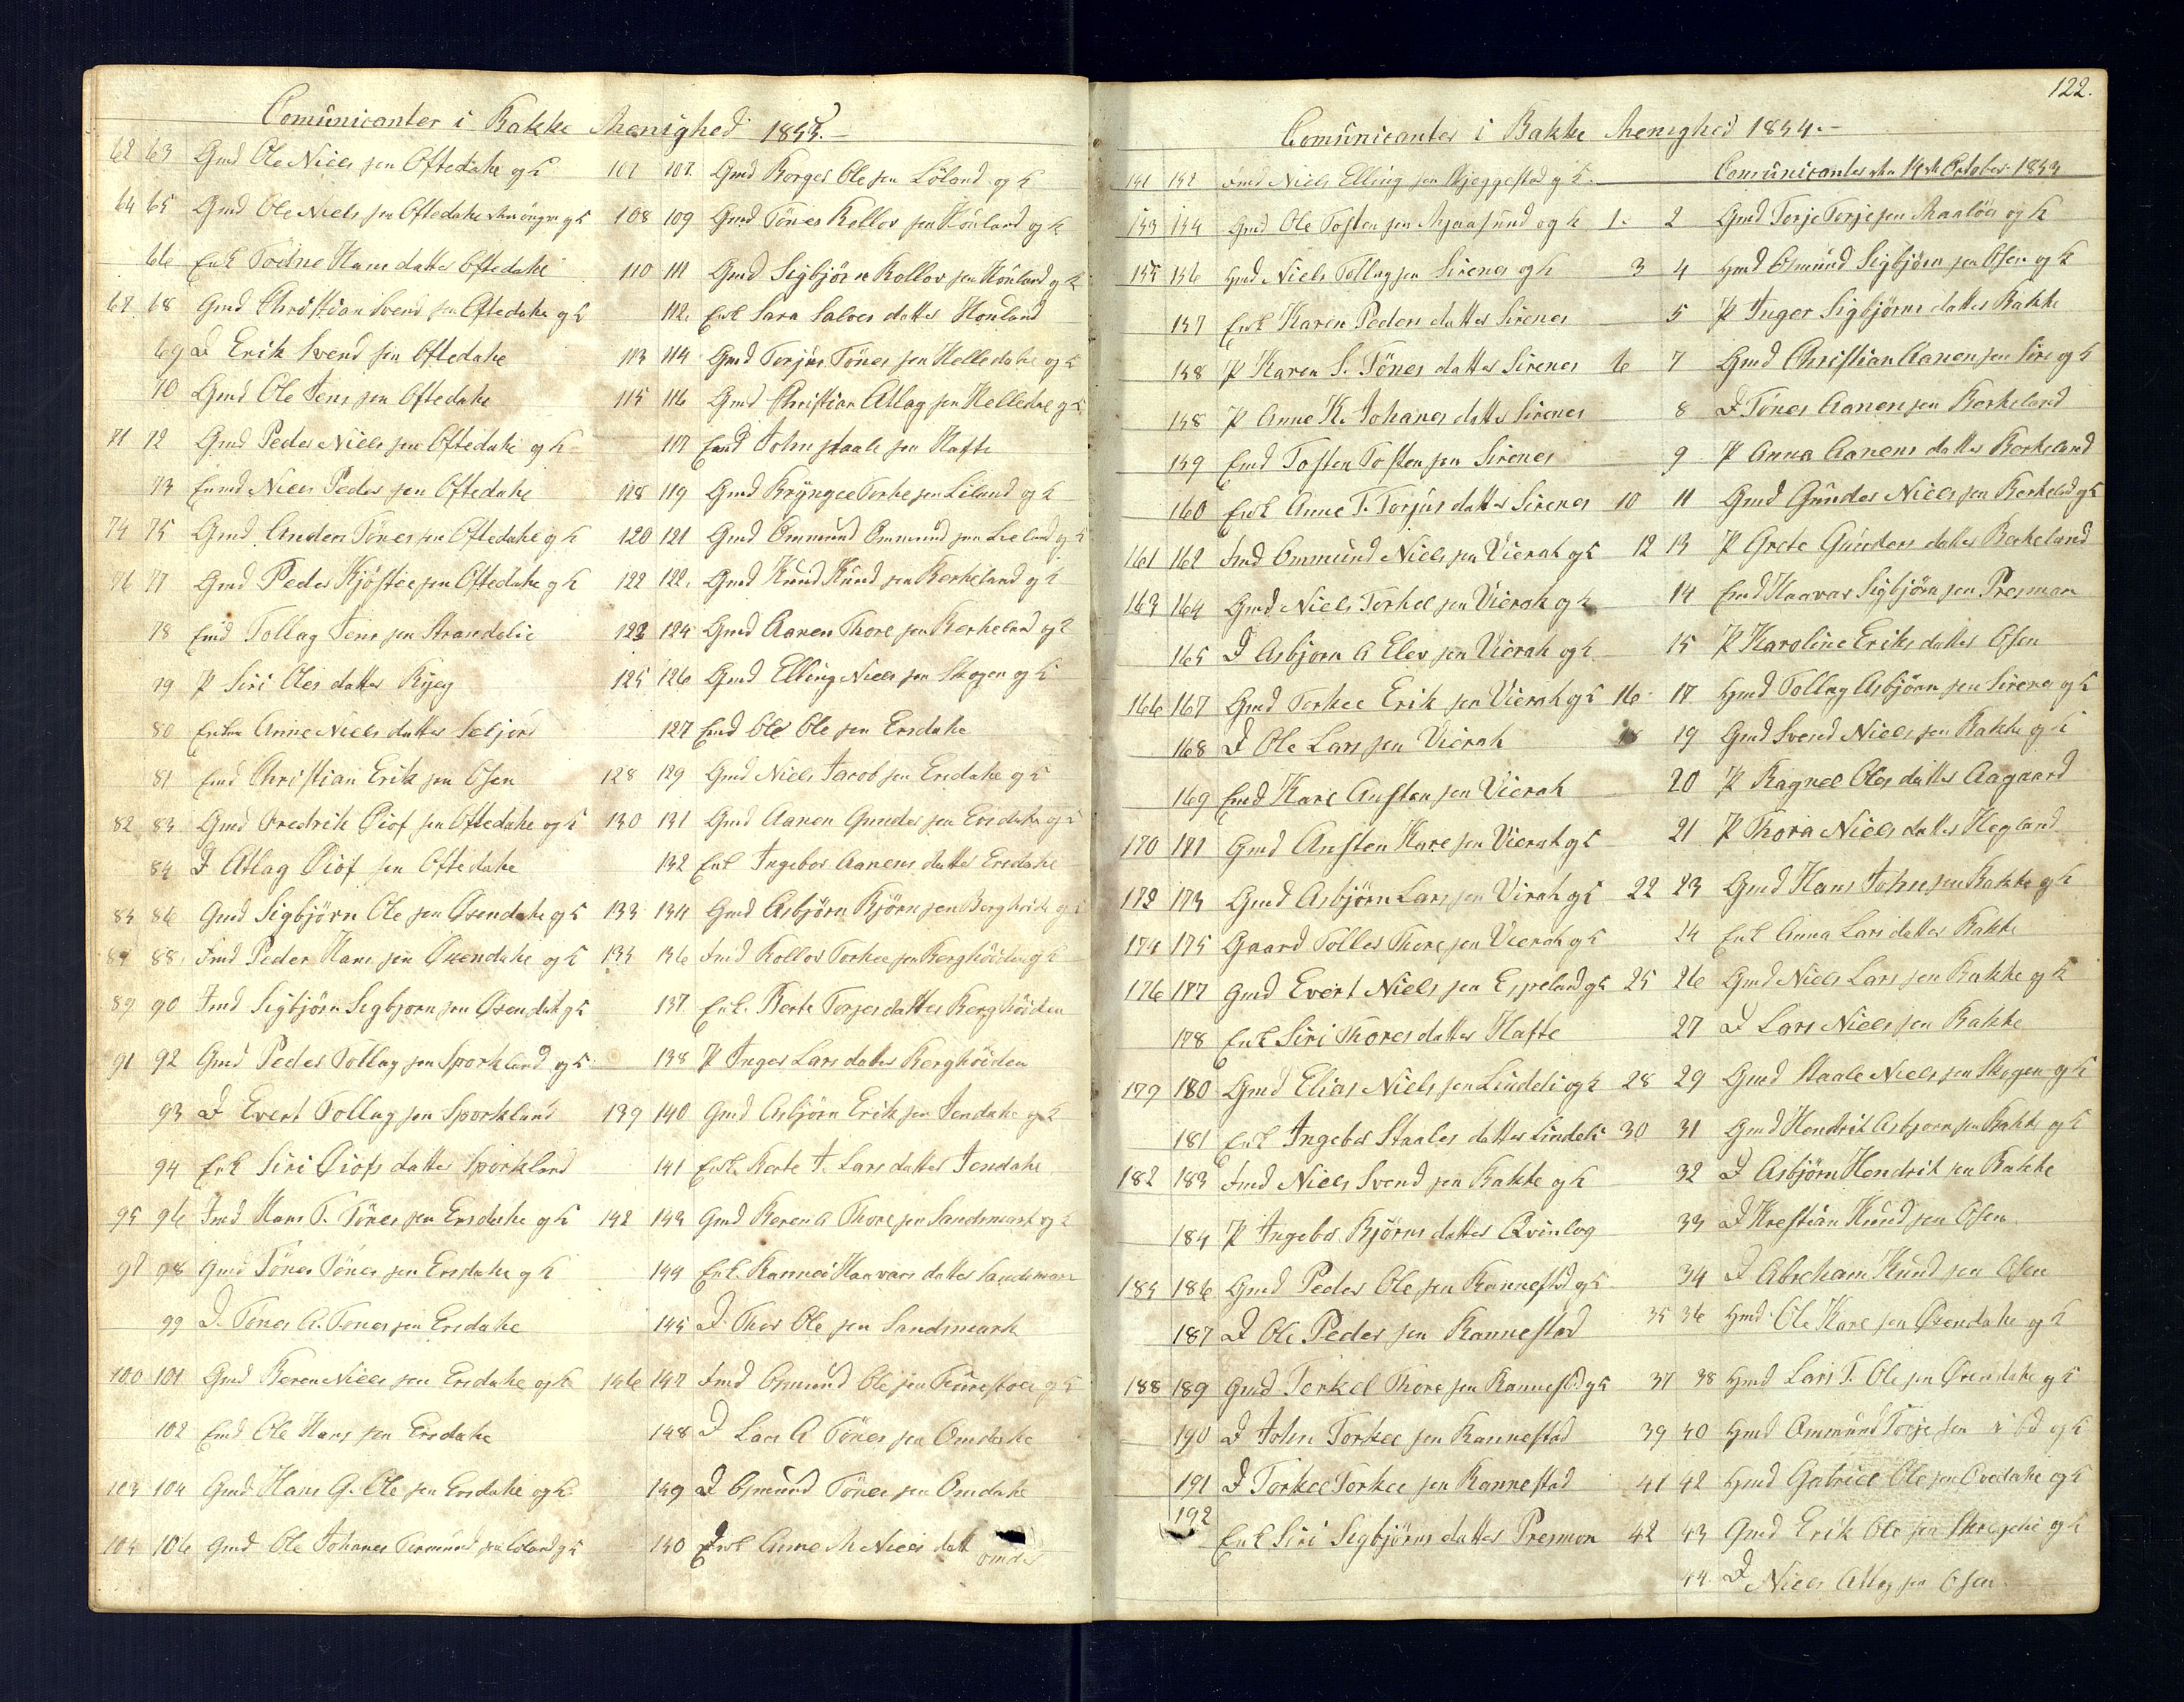 Comunicanter i Bakke Menighed 1853.-
62 63 Gmd Ole Niels sen Oftedahe og K
64 65 Gmd Ole Niels sen Oftedahe den üngre og K
66 Enk Todne Hans datter Oftedahe
67. 68 Gmd Christian Svend sen Oftedahe og K
69 D Erik Svend sen Oftedahe
70 Gmd Ole Jens sen Oftedahe
71 72 Gmd Peder Niels sen Oftedahe og K
73 Enmd Niels Peder sen Oftedahe
74 75 Gmd Anders Tönes sen Oftedahe og K
76 77 Gmd Peder Kjöstel sen Oftedahe og K
78 Emd Tollag Jens sen Strandelie
79 P Siri Oles datter Rijeg
80 Enke Anne Niels datter Seljord
81 Emd Christian Erik sen Osen
82 83 Gmd Fredrik Eiof sen Oftedahe og K
84 D Atlag Eiof sen Oftedahe
85 86 Gmd Sigbjörn Ole sen Øxendahe og K
87 88. Imd Peder Hans sen Øxendahe og K
89 90 Imd Sigbjörn Segbjorn sen Øxendah og K
91 92 Gmd Peder Tollag sen Sporkland og K
93 D Evert Tollag sen Sporkland
94 Enk Siri Eiofs datter Sporkland
95 96 Imd Hans T. Tönes sen Ersdahe og K
97 98 Gmd Tönes Tönes sen Ersdahe og K
99 D. Tönes A. Tönes sen Ersdahe
100 101 Gmd Beren Niels sen Ersdahe og K
102 Emd Ole Hans sen Ersdahe
103 104 Gmd Hans G. Ole sen Ersdahe og K
105 106 Gmd Ole Johanes Termund sen Löland og K
107 107. Gmd Borger Ole sen Löland og K
108 109 Gmd Tönes Rollov sen Honland og K
110 111 Gmd Sigbjörn Rollov sen Honland og K
112. Enk Sara Salves datter Honland
113 114 Gmd Torjus Tönes sen Helledahe og K
115 116 Gmd Christian Atlag sen Helledae og K
117 Emd John Staale sen Hafte
118 119 Gmd Bryngel Terke sen Liland og K
120 121 Gmd Ommund Ommund sen Lieland og K
122 122. Gmd Knud Knud sen Berkeland og K
123 124 Gmd Aanen Thore sen Berkeland og K
125 126 Gmd Elling Niels sen Skogen og K
127 Emd Ole Ole sen Ersdahe
128 129 Gmd Niels Jacob sen Ersdahe og K
130 131 Gmd Aanen Gunder sen Ersdahe og K
132 Enk Ingebor Aanens datter Ersdahe
133 134 Gmd Asbjörn Björn sen Berghöide og K
135 136 Imd Rollov Torkel sen Berghöiden og K
137 Enk. Berte Torjes datter Berghöiden
138 P Inger Lars datter Berghöiden
139 140 Gmd Asbjörn Erik sen Jendahe og K
141 Enk. Berte T. Lars datter Jendahe
142 143 Gmd Beren A Thore sen Sandsmark og K
144 Enk. Rannei Haavars datter Sandsmark
145 D. Thor Ole sen Sandsmark
146 147 Imd Osmund Ole sen Tunestvei og K
148 D Lars A Tönes sen Omdahe
149 D Osmund Tönes sen Omdahe
150 Enk Anne M Niels datt omdes
122.
Comunicanter i Bakke Menighed 1854.-
151 152 Imd Niels Elling sen Skjeggestad og K.
153 154 Gmd Ole Tosten sen Mjaasund og K
155 156 Hmd Niels Tollag sen Sirenes og K
157 Enk Karen Peders datter Sirenes
158 P Karen S. Tönes datter Sirenes
158 P Anne K. Johanes datter Sirenes
159 Emd Tosten Tosten sen Sirenes
160 Enk Anne T. Torjus datter Sirenes
161 162 Imd Ommund Niels sen Vierah og K
163 164 Gmd Niels Torkel sen Vierah og K
165 D Asbjorn A Elev sen Vierah og K
166 167 Gmd Torkel Erik sen Vierah og K
168 D Ole Lars sen Vierah
169 Emd Kare Austen sen Vierah
170 171 Gmd Austen Kare sen Vierah og K
172 173 Gmd Asbjörn Lars sen Virah og K
174 175 Gaard Tolles Thore sen Vierah og K
176 177 Gmd Evert Niels sen Espeland og K
178 Enk Siri Thores datter Hafte
179 180 Gmd Elias Niels sen Lindeli og K
181 Enk Ingebor Staales datter Lindeli
182 183 Imd Niels Svend sen Bakke og K
184 P Ingebor Björns datter Qvinlog
185 186 Gmd Peder Ole sen Rannestad og K
187 D Ole Peder sen Rannestad
188 189 Gmd Terkel Thore sen Rannestad og K
190 D John Torkel sen Rannestad
191 D Torkel Torkel sen Rannestad
192 Enk Siri Sigbjörns datter Presmon
Comunicanter den 14de October 1853
1. 2 Gmd Torje Torje sen Maalöe og K
3 4 Hmd Osmund Sigbjörn sen Osen og K
5 P Inger Sigbjörns datter Bakke
6 7 Gmd Christian Aanen sen Sire og K
8 D Tönes Aanen sen Berkeland
9 P Anna Aanens datter Berkeland
10 11 Gmd Gunder Niels sen Berkeland og K
12 13 P Grete Gunders datter Berkeland
14 Emd Haavar Sigbjörn sen Presmon
15 P Karoline Eriks datter Osen
16 17 Hmd Tollag Asbjörn sen Sirenes og K
18 19 Gmd Svend Niels sen Bakke og K
20 P Ragnel Oles datter Aagaard
21 P Thora Niels datter Hegland
22 23 Gmd Hans John sen Bakke og K
24 Enk Anna Lars datter Bakke
25 26 Gmd Niels Lars sen Bakke og K
27 D Lars Niels sen Bakke
28 29 Gmd Staale Niels sen Skogen og K
30 31 Gmd Hendrik Asbjorn sen Bakke og K
32 D Asbjörn Hendrik sen Bakke
33 D Krestian Knud sen Osen
34 D Abraham Knud sen Osen
35 36 Hmd Ole Kare sen Øxendahe og K
37 38 Hmd Lars T. Ole sen Øxendahe og K
39 40 Hmd Ommund Torje sen og K
41 42 Hmd Gabriel Ole sen Ovedahe og K
42 43 Gmd Erik Ole sen og K
44. D Niels Atlag sen Osen